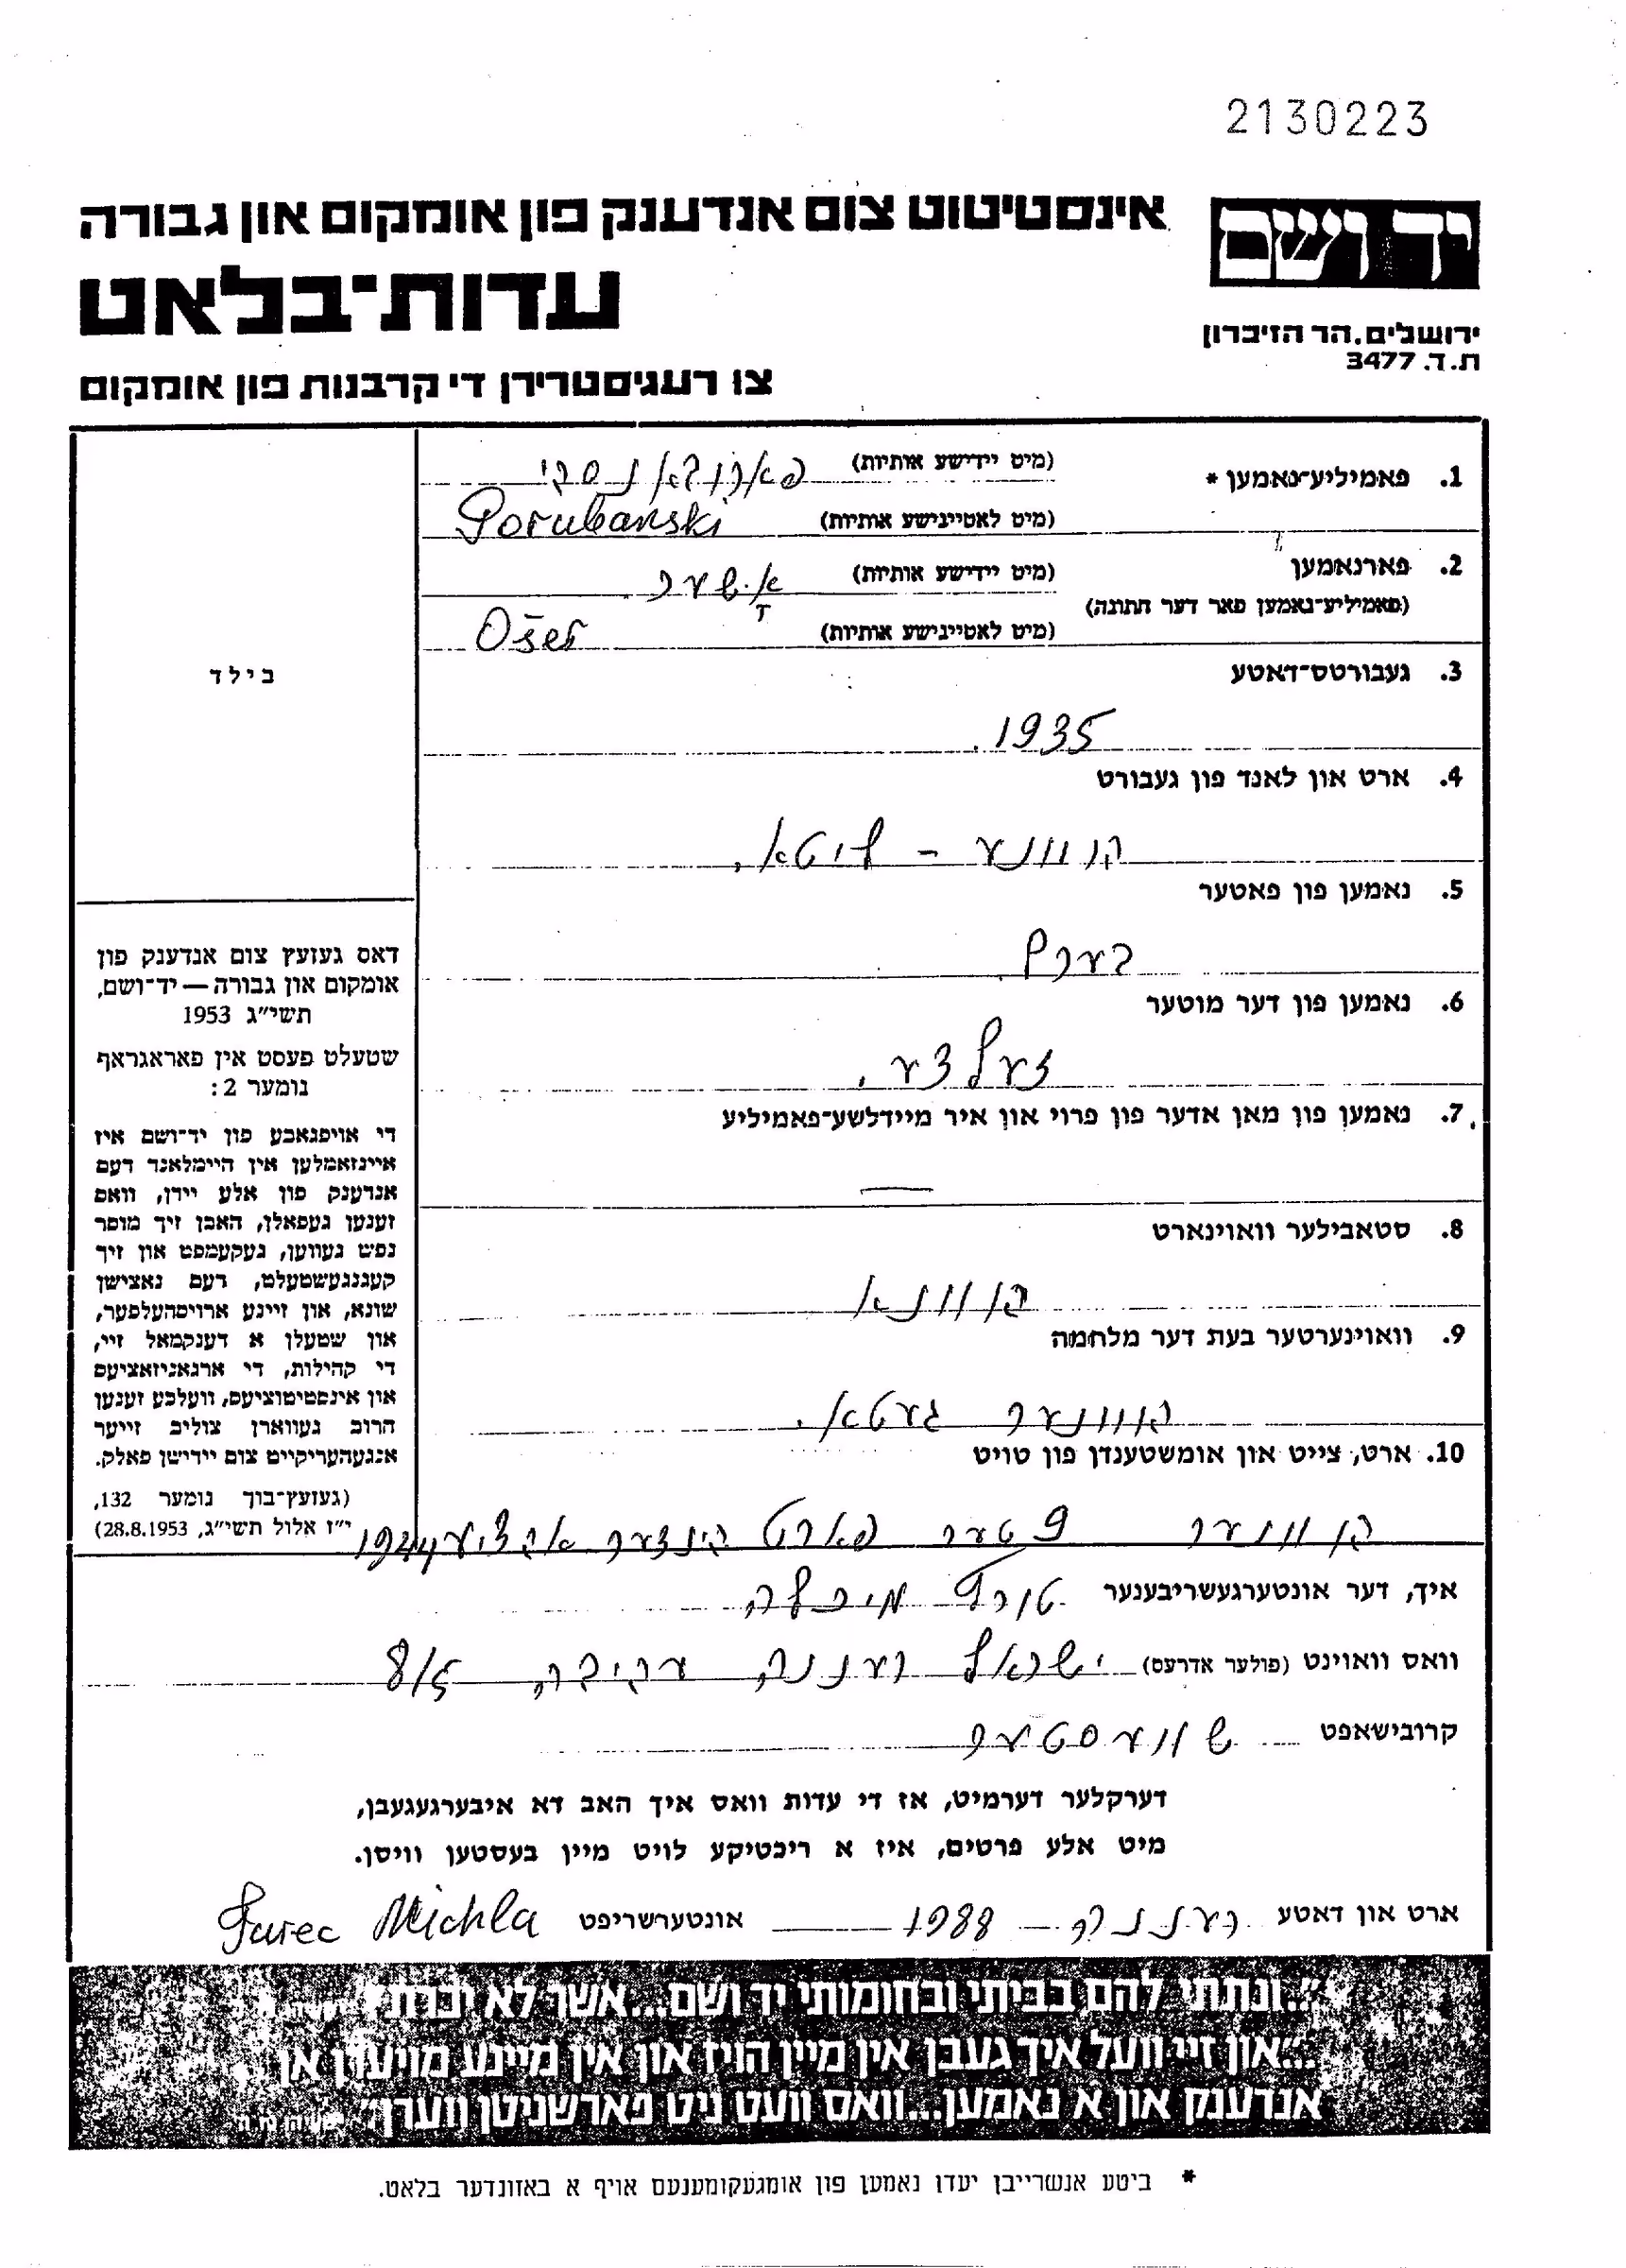 2130223
אינסטיטוט צום אנדענק פון אומקום און גבורה
יד ושם
עדות־בלאט
ירושלים, הר הזיכרון
ת.ד. 3477
צו רעגיסטרירן די קרבנות פון אומקום
1. פאמיליע־נאמען * (מיט יידישע אותיות) פארובאנסקי
(מיט לאטיינישע אותיות) Porubanski
2. פארנאמען (מיט יידישע אותיות) אָשער.
(פאמיליע־נאמען פאר דער חתונה)
(מיט לאטייניש‎ע אותיות) Ošer
3. געבורטס־דאטע
1935.
4. ארט און לאנד פון געבורט
קווונע - ליטא.
5. נאמען פון פאטער
בערל
6. נאמען פון דער מוטער
זעלדע.
7. נאמען פון מאן אדער פון פרוי און איר מיידלשע־פאמיליע
—
8. סטאבילער וואוינארט
קוונא
9. וואוינערטער בעת דער מלחמה
קוונער געטא.
10. ארט, צייט און אומשטענדן פון טויט
קוונער 9 טער פארט קינדער אקציע 1944
בילד
דאס געזעץ צום אנדענק פון
אומקום און גבורה — יד־ושם,
תשי״ג 1953
שטעלט פעסט אין פאראגראף
נומער 2:
די אויפגאבע פון יד־ושם איז
איינזאמלען אין היימלאנד דעם
אנדענק פון אלע יידן, וואס
זענען געפאלן, האבן זיך מוסר
נפש געווען, געקעמפט און זיך
קעגנגעשטעלט, דעם נאצישן
שונא, און זיינע ארויסהעלפער,
און שטעלן א דענקמאל זיי,
די קהילות, די ארגאניזאציעס
און אינסטיטוציעס, וועלכע זענען
הרוב געווארן צוליב זייער
אנגעהעריקייט צום יידישן פאלק.
(געזעץ־בוך נומער 132,
י״ז אלול תשי״ג, 28.8.1953)
איך, דער אונטערגעשריבענער טורץ מיכלה
וואס וואוינט (פולער אדרעס) ישראל רעננה, עקיבה, 5/8
קרובישאפט שוועסטער
דערקלער דערמיט, אז די עדות וואס איך האב דא איבערגעגעבן,
מיט אלע פרטים, איז א ריכטיקע לויט מיין בעסטען וויסן.
ארט און דאטע רעננה - 1988 אונטערשריפט Turec Michla
״...ונתתי להם בביתי ובחומותי יד ושם...אשר לא יכרת״
״...און זיי וועל איך געבן אין מיין הויז און אין מיינע מויערן אן
אנדענק און א נאמען...וואס וועט ניט פארשניטן ווערן״
* ביטע אנשרייבן יעדן נאמען פון אומגעקומענעם אויף א באזונדער בלאט.